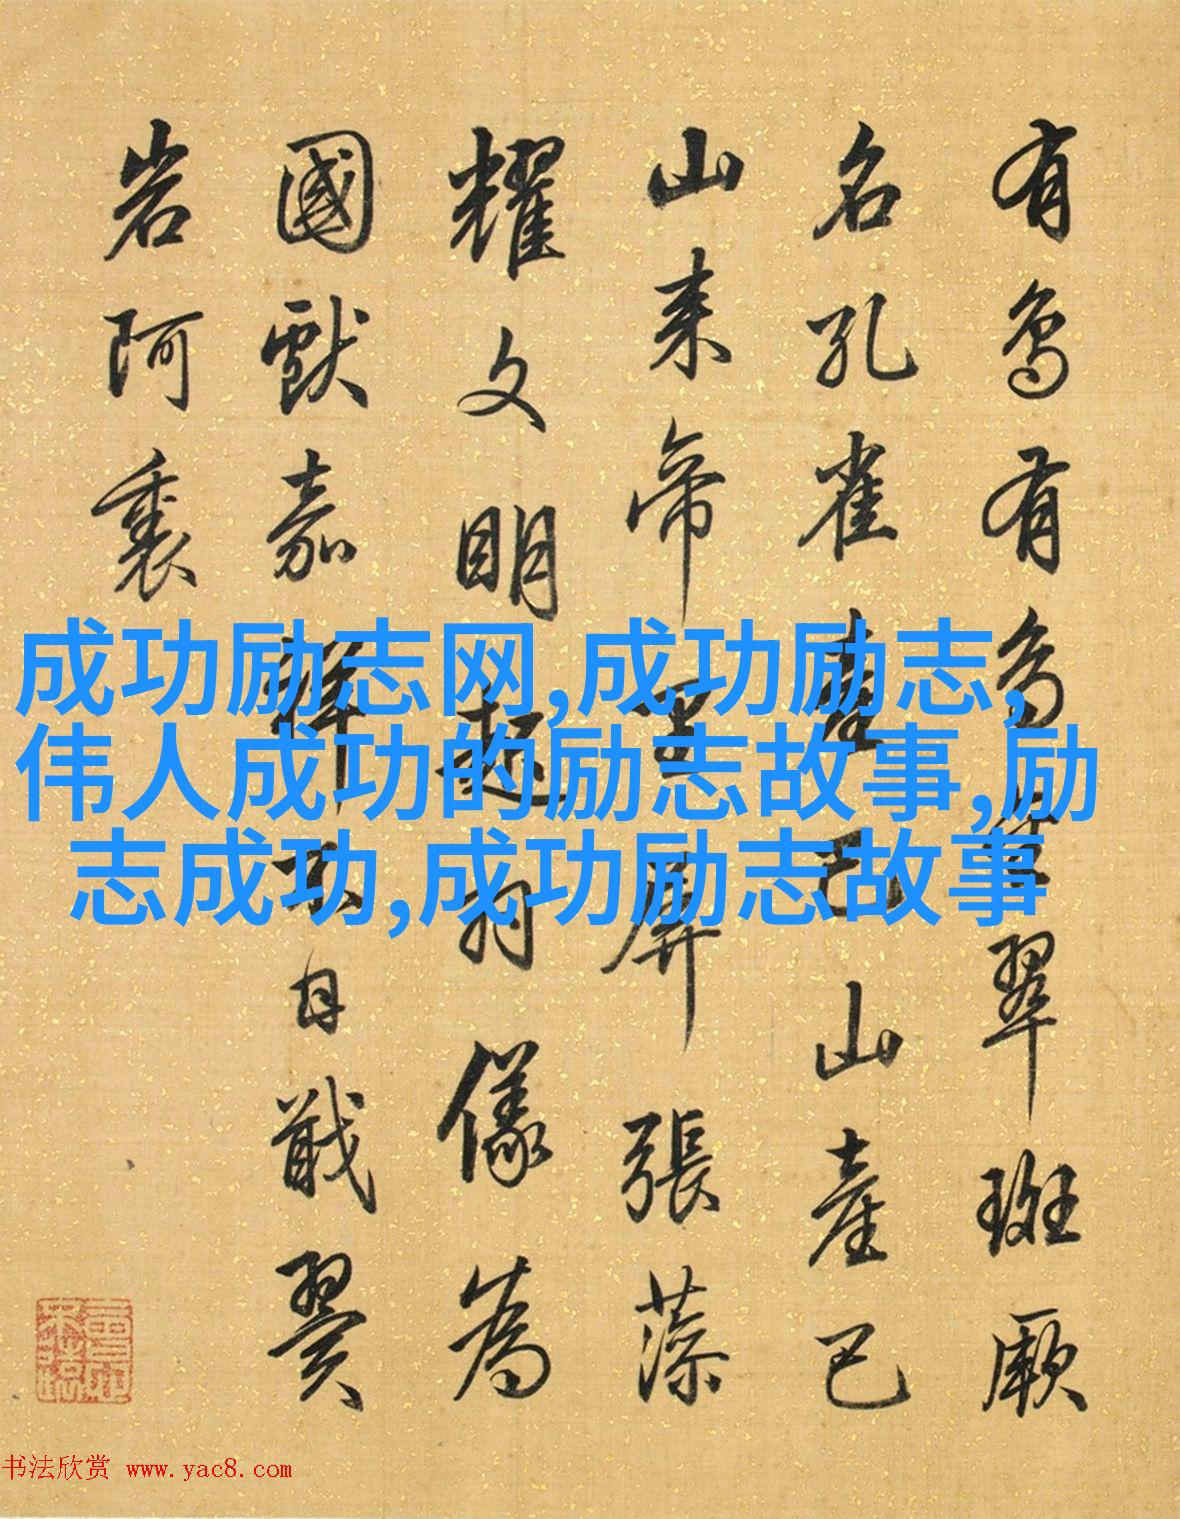 有鳥有鳥翠斑厥
名孔雀產巴山產巴
山来帝里屏張藻
耀文明起羽儀為
國獻嘉祥不自戢翼
岩阿裏
成功励志网,成功励志,
伟人成功的励志故事,励
志成功,成功励志故事
书法欣赏 www.yac8.com